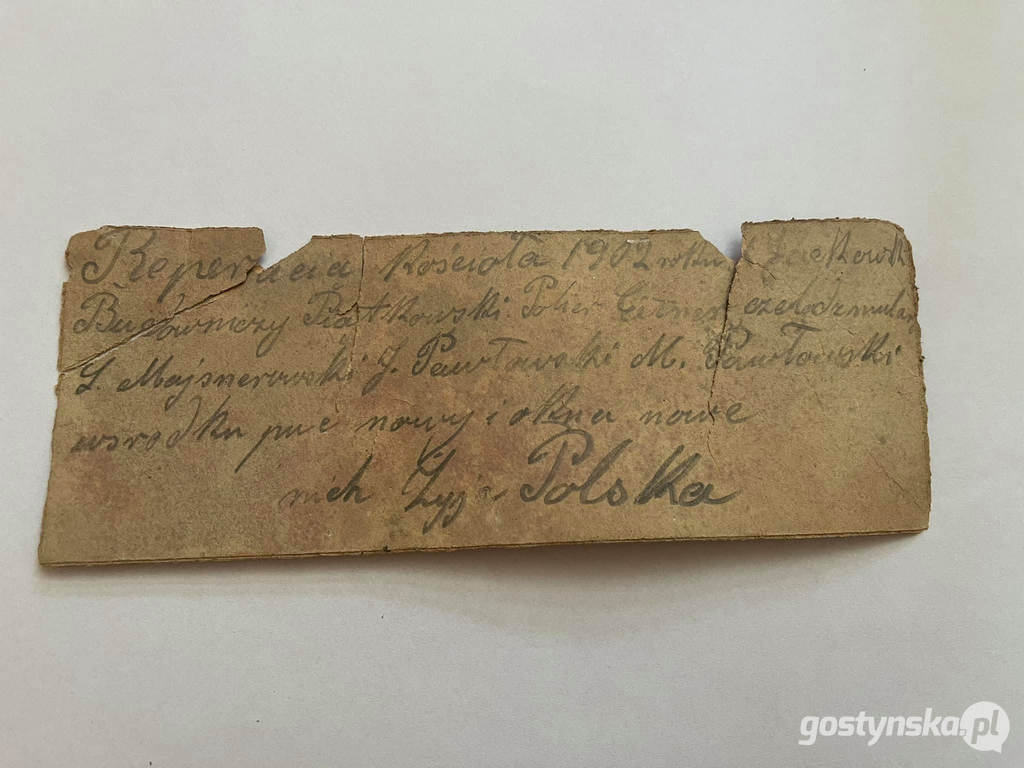 Reperacia Kościoła 1902 roku Jackowski
Budowniczy Piatkowski Polier czeladz mular
S. Majsnerowski J. Pawłowski M. Pawłowski
wsrodku nowy i okna nowe
nich Żyje Polska
gostynska.pl